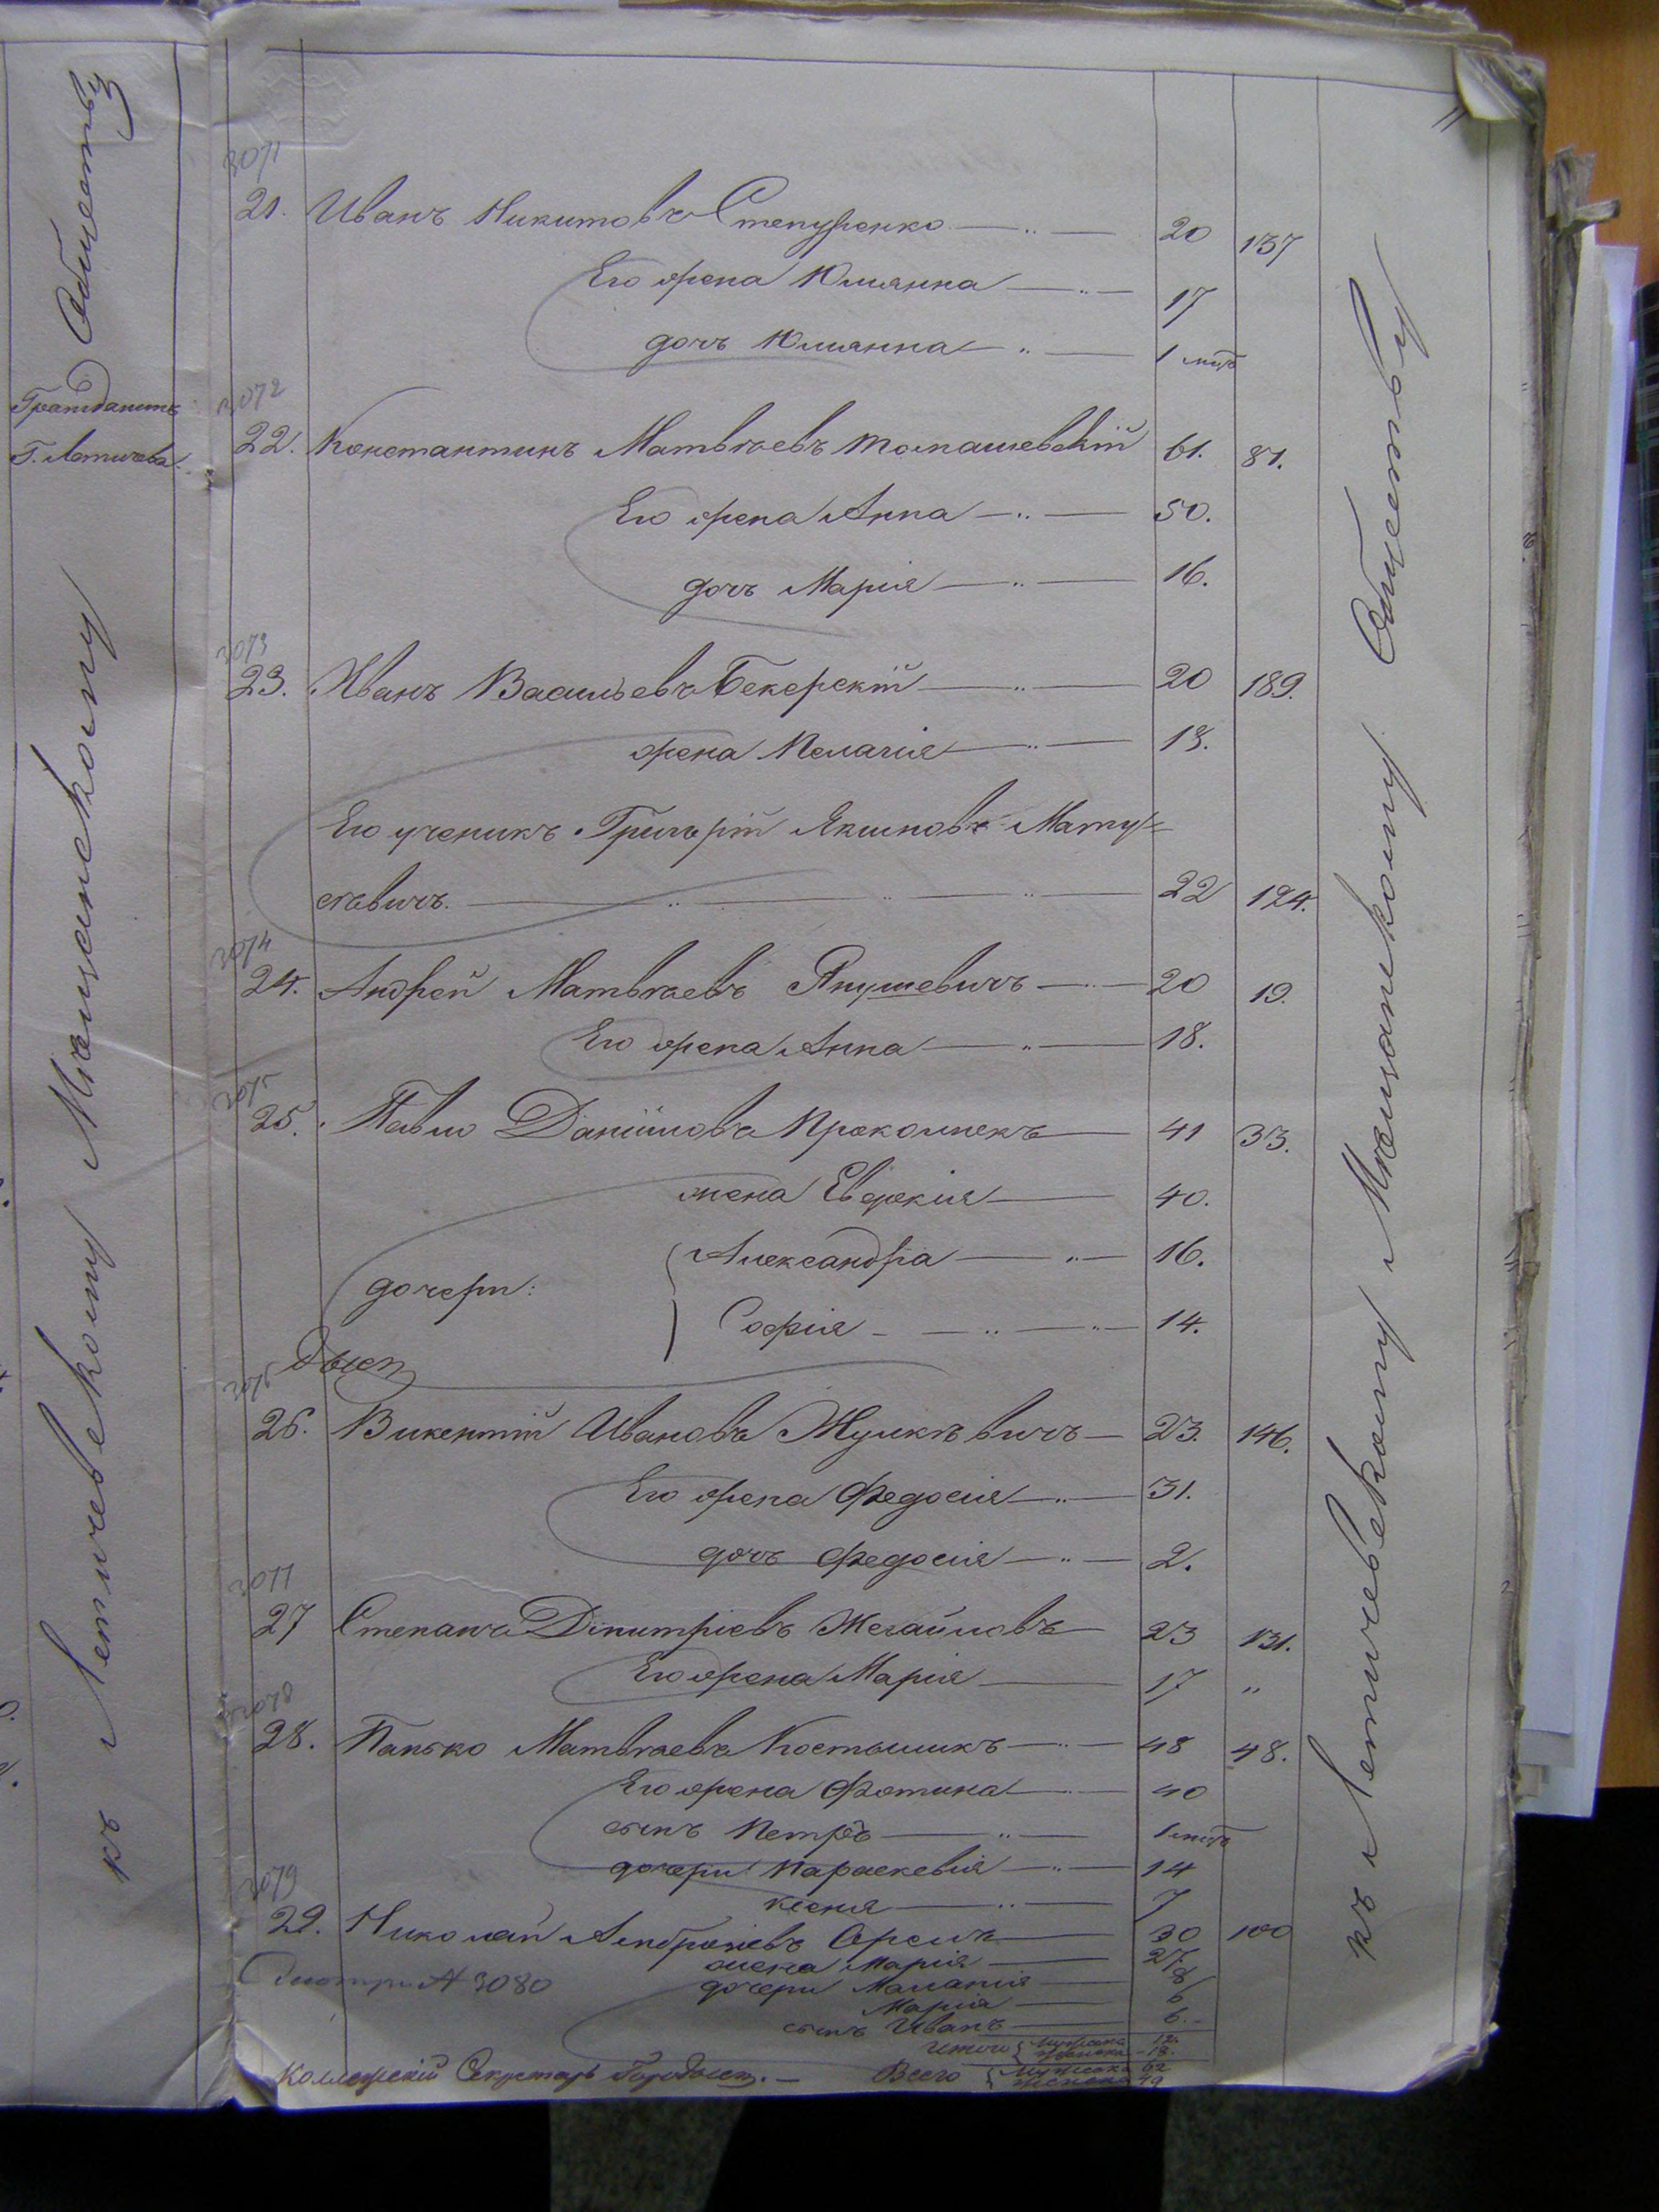 Обществу
Гражданинъ
Г. Летичева
къ Летичевскому Мѣщанскому
3071
21. Иванъ Никитовъ Степуренко 20 137
Его жена Юлианна 17
дочь Юлианна 1 мцъ
3072
22. Константинъ Матвѣевъ Томашевскій 61. 81.
Его жена Анна 50.
дочь Марія 16.
3073
23. Иванъ Васильевъ Бекерскій 20 189.
жена Пелагія 18.
Его ученикъ Григорій Якимовъ Мату=
севичъ. 22 124.
3074
24. Андрей Матвѣевъ Янушевичъ 20 19.
Его жена Анна 18.
3075
25. Павло Даніиловъ Прокопчекъ 41 33.
жена Евдокія 40.
дочери: Александра 16.
Софія 14.
3076
26. Викентій Ивановъ Жулкѣвичъ 23. 146.
Его жена Федосія 31.
дочь Федосія 2.
3077
27 Степанъ Димитріевъ Жегайловъ 23 131.
Его жена Марія 17 "
3078
28. Панько Матвѣевъ Костыликъ 48 48.
Его жена Фотина 40
сынъ Петръ 1 мцъ
дочери Параскевія 14
Ксенія 7
3079
29. Николай Андреевъ Орелъ 30 100
жена Марія 27
дочери Маланія 8
Марія 6
сынъ Иванъ 6.
Смотри № 3080
Итого Мужеска 12.
женска 18.
Коллежскій Секретарь
Всего Мужеска 62
женска 49
къ Летичевскому Мѣщанскому Обществу